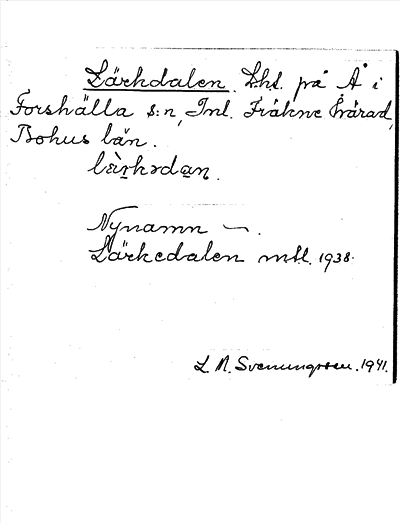 Lärkdalen. Lht. på Å i
Forshälla s:n, Inl. Fräkne härad,
Bohus län.
lä̀rkədan.
Nynamn —.
Lärkedalen mtl. 1938.
L. N. Svenungsson. 1941.